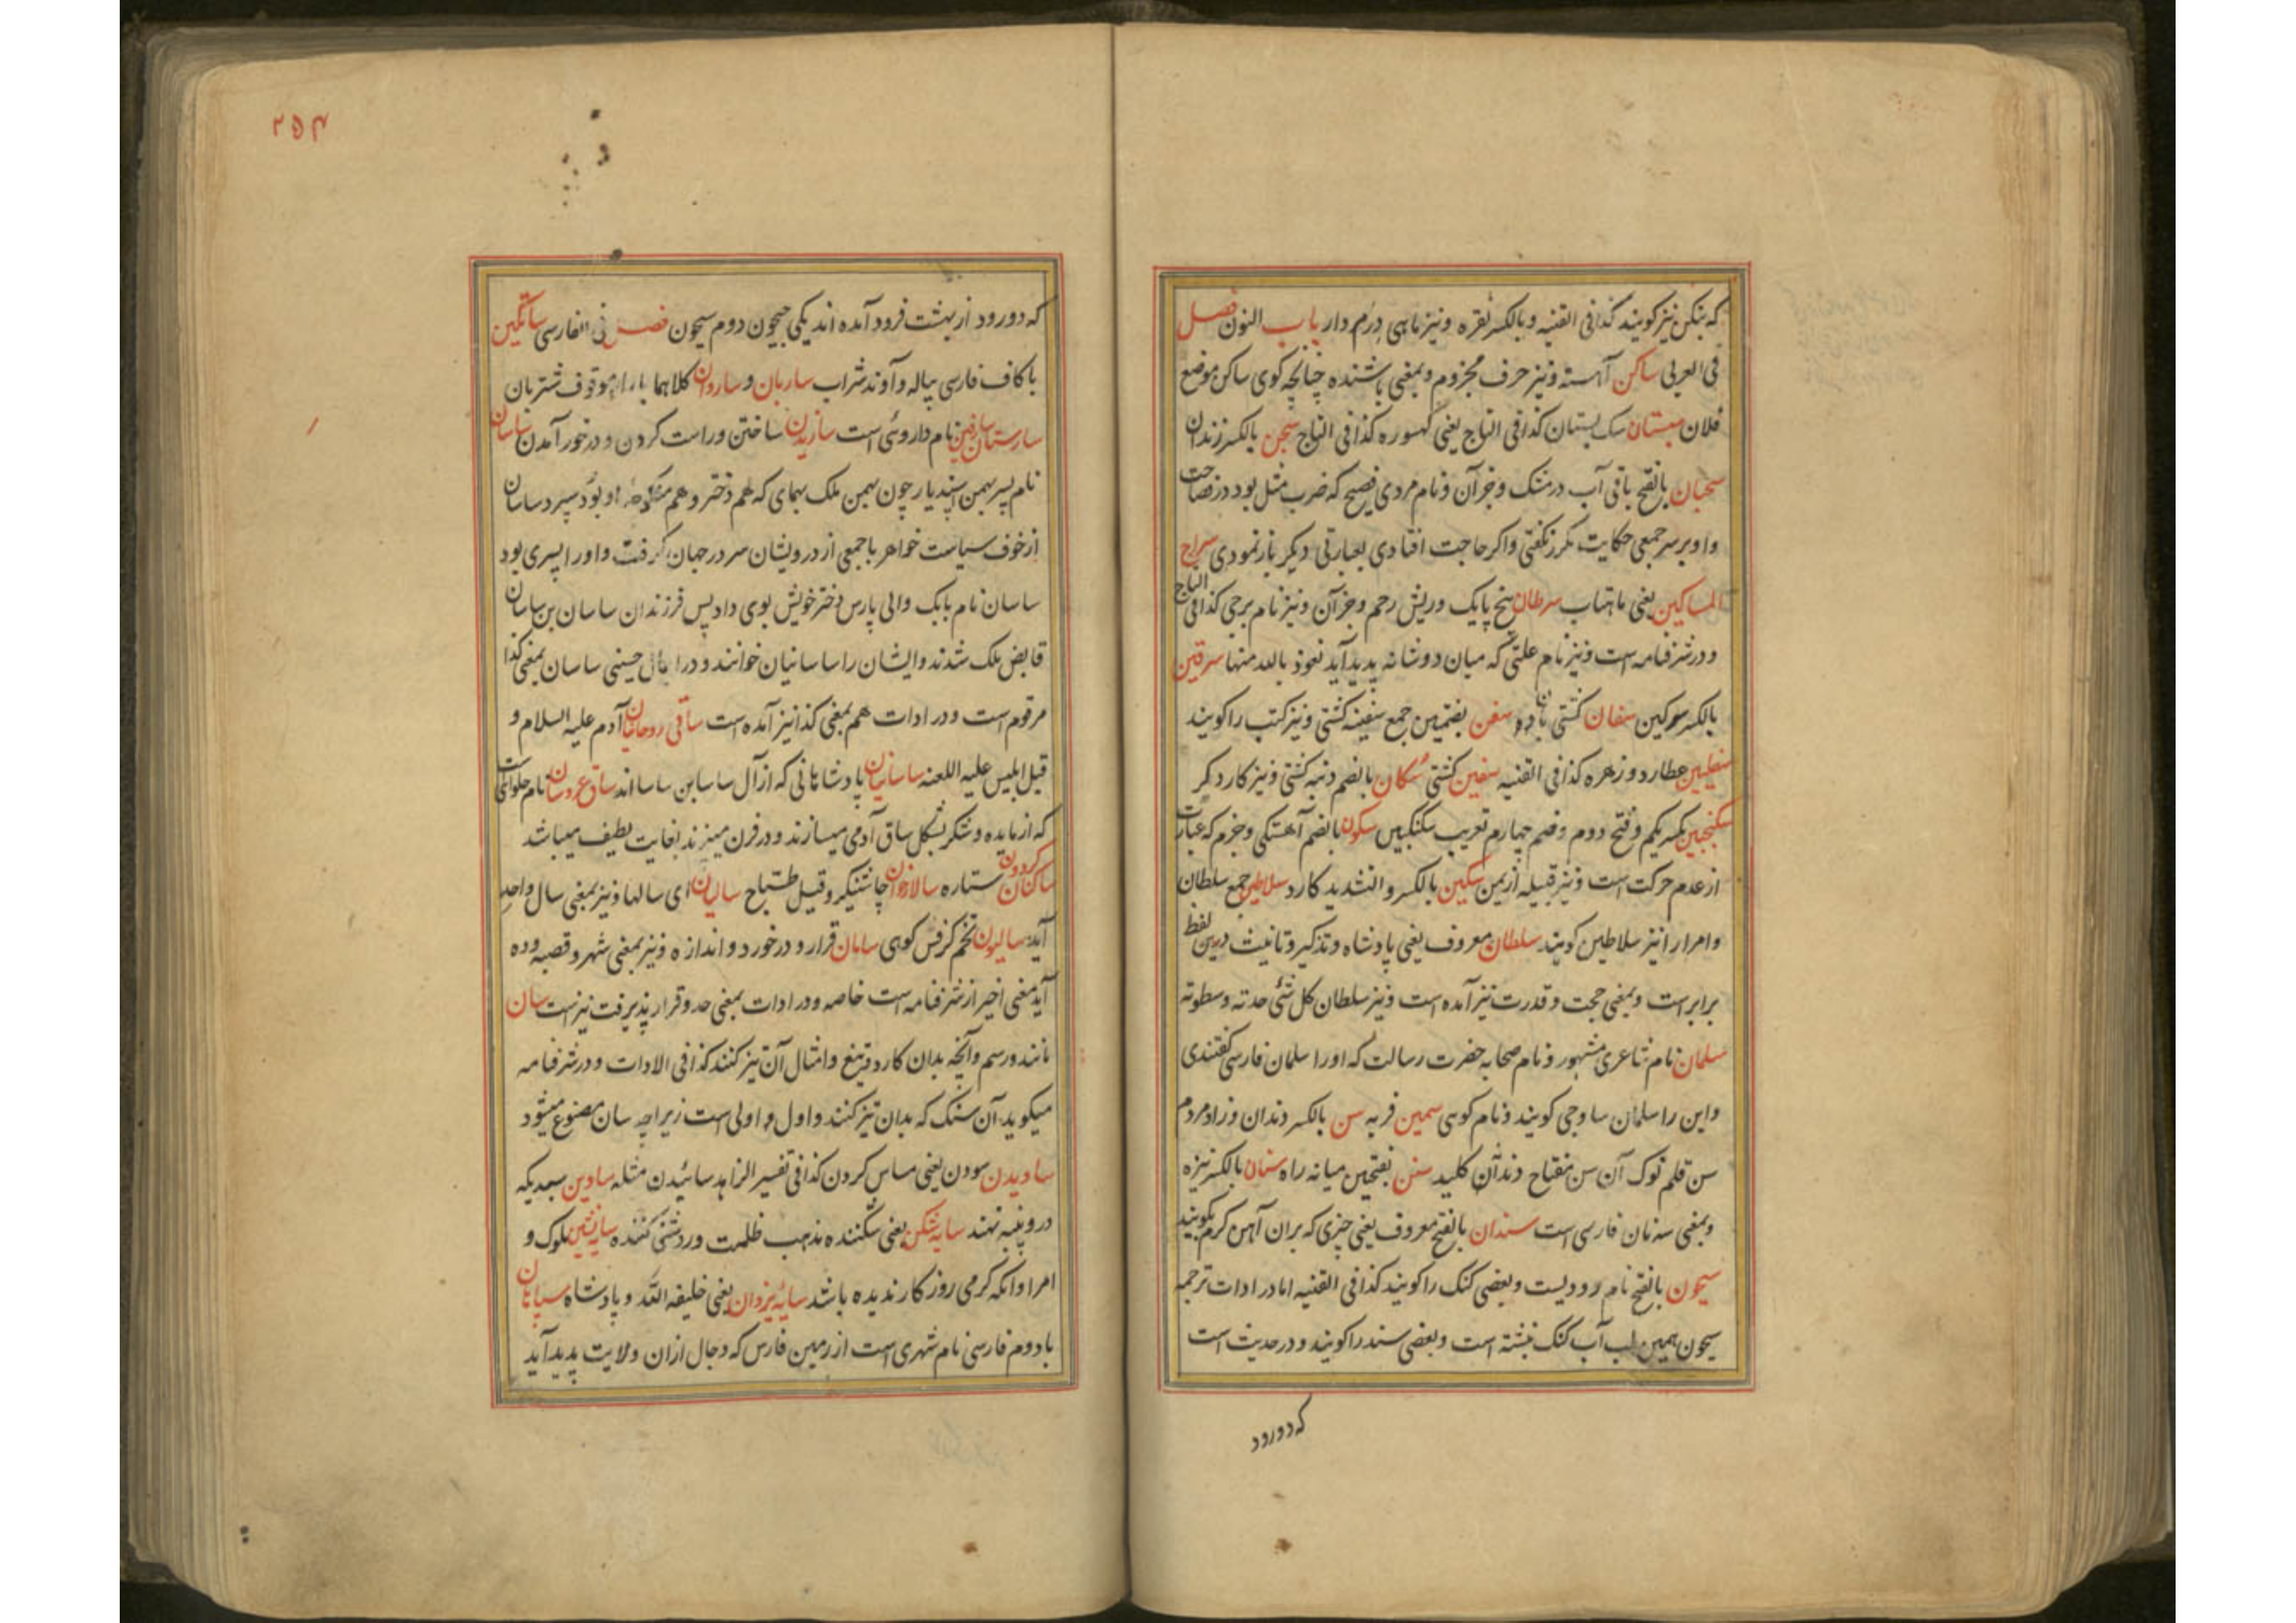 که بنکن نیز کویند کذا فی القنیه و بالکسر نقره و نیز ماهی درم دار باب النون فصل
فی العربی ساکن آهسته و نیز حرف مجزوم و بمعنی باشنده چنانچه کوی ساکن موضع
فلان سبستان سک پستان کذا فی التاج یعنی لهسوره کذا فی التاج سجن بالکسر زندان
سحبان بالفتح باقی آب در مشک و جز آن و نام مردی فصیح که ضرب مثل بود در فصاحت
و او بر سر جمعی حکایت مکرر نکفتی و اکر حاجت افتادی بعبارتی دیکر باز نمودی سراج
المساکین یعنی ماهتاب سرطان پنج پایک و ریش رحم و جز آن و نیز نام برجی کذا فی التاج
و در شرفنامه است و نیز نام علتی که میان دو شانه پدید آید نعوذ بالله منها سرقین
بالکسر سرکین سفان کشتی بان سفن بضمتین جمع سفینه کشتی و نیز کتب را کویند
سفلیین عطارد و زهره کذا فی القنیه سفین کشتی سکان بالضم دنبه کشتی و نیز کارد کر
سکنجبین بکسر یکم و فتح دوم و ضم چهارم تعریب سکنکبین سکون بالضم آهستکی و جزم که عبارت
از عدم حرکت است و نیز قبیله از یمن سکین بالکسر و التشدید کارد سلاطین جمع سلطان
و امرا را نیز سلاطین کویند سلطان معروف یعنی پادشاه و تذکیر و تانیث درین لفظ
برابر است و بمعنی حجت و قدرت نیز آمده است و نیز سلطان کل شئ حدته و سطوته
سلمان نام شاعری مشهور و نام صحابه حضرت رسالت که او را سلمان فارسی کفتندی
و این را سلمان ساوجی کویند و نام کوهی سمین فربه سن بالکسر دندان و زاد مردم
سن قلم نوک آن سن مفتاح دندان کلید سنن بفتحین میانه راه سنان بالکسر نیزه
و بمعنی سه نان فارسی است سندان بالفتح معروف یعنی چیزی که بران آهن کرم بکوبند
سیحون بالفتح نام رودیست و بعضی کنک را کویند کذا فی القنیه اما در ادات ترجمه
سیحون همین لب آب کنک نبشته است و بعضی سند را کویند و در حدیث است
که دو رود
۲۵۴
که دو رود از بهشت فرود آمده اند یکی جیحون دوم سیحون فصل فی الفارسی ساتکین
با کاف فارسی پیاله و آوند شراب ساربان و ساروان کلاهما با راء موقوف شتربان
سارستان سارفین نام داروئی است سازیدن ساختن و راست کردن و در خور آمدن ساسان
نام پسر بهمن اسپندیار چون بهمن ملک بهمای که هم دختر و هم منکوحه او بود سپرد ساسان
از خوف سیاست خواهر با جمعی از درویشان سر در جهان کرفت و او را پسری بود
ساسان نام بابک والی پارس دختر خویش بوی داد پس فرزندان ساسان بن ساسان
قابض ملک شدند و ایشان را ساسانیان خوانند و در حسینی ساسان بمعنی کدا
مرقوم است و در ادات هم بمعنی کدا نیز آمده است ساقی روحانیان آدم علیه السلام و
قیل ابلیس علیه اللعنه ساسانیان پادشاهانی که از آل ساسان بن ساسان اند ساق عروسان نام حلوائیست
که از مایده و شکر بشکل ساق آدمی میسازند و در فرن میپزند بغایت لطیف میباشد
ساکنان کردون ستاره سالارخوان چاشنیکیر و قیل طباخ سالیان ای سالها و نیز بمعنی سال واحد
آید سالیون تخم کرفس کوهی سامان قرار و در خورد و اندازه و نیز بمعنی شهر و قصبه و ده
آید معنی اخیر از شرفنامه است خاصه و در ادات بمعنی حد و قرار پذیرفت نیز است سان
مانند و رسم و آنچه بدان کارد و تیغ و امثال آن تیز کنند کذا فی الادات و در شرفنامه
میکوید آن سنک که بدان تیز کنند و اول اولی است زیراچه سان مصنوع میشود
ساویدن سودن یعنی مساس کردن کذا فی تفسیر الزاهد سائیدن مثله ساوین سبدیکه
درو پنبه نهند سایه شکن یعنی شکننده مذهب ظلمت و روشنی کننده سایه نشین ملوک و
امرا و آنکه کرمی روزکار ندیده باشد سایه یزدان یعنی خلیفه الله و پادشاه سپاهان
با دوم فارسی نام شهری است از زمین فارس که دجال ازان ولایت پدید آید